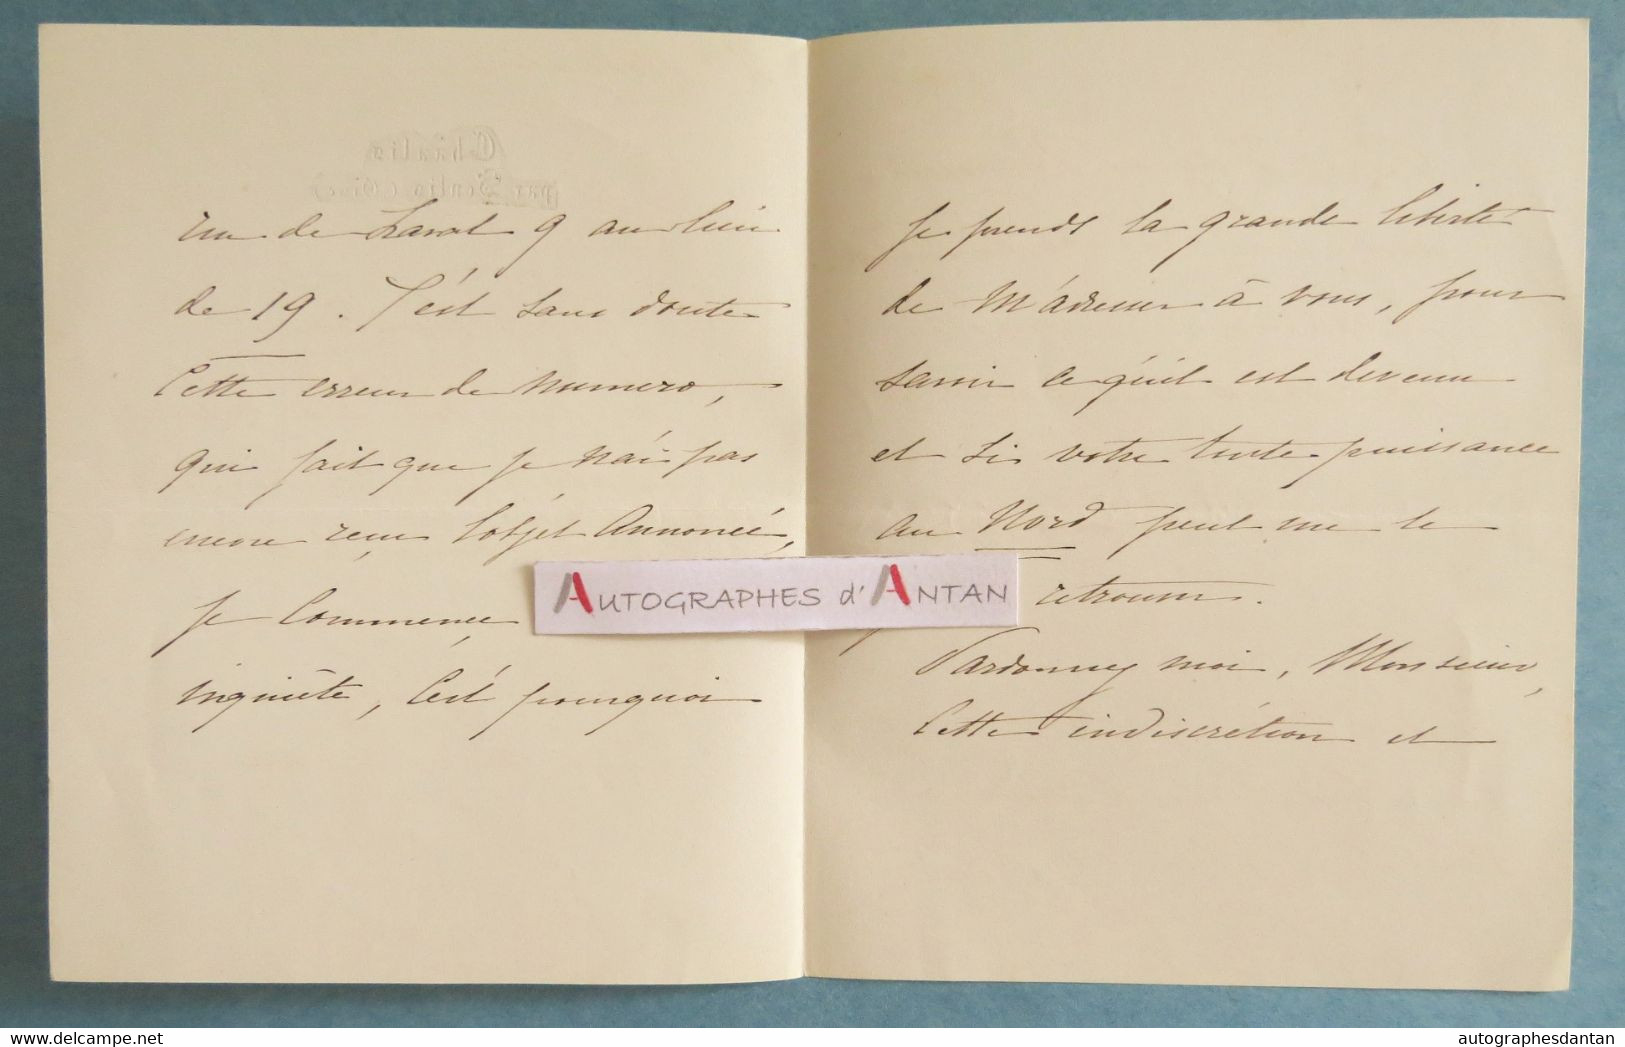 Châalis
par Senlis (Oise)
rue de Laval 9 au lieu
de 19. C'est sans doute
Cette erreur de numero,
qui fait que je n'ai pas
encore reçu l'objet Annoncé,
je Commence
inquiète, C'est pourquoi
je prends la grande liberté
de M'adresser à vous, pour
savoir ce qu'il est devenu
et si votre toute puissance
au Nord peut me le
retrouver.
Pardonnez moi, Monsieur,
Cette indiscrétion et
AUTOGRAPHES d'ANTAN
www.delcampe.net
autographesdantan